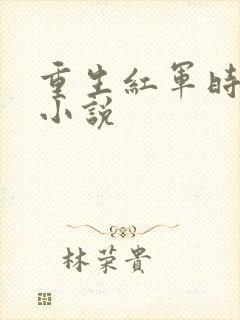 重生紅軍時
小說
林荣貴